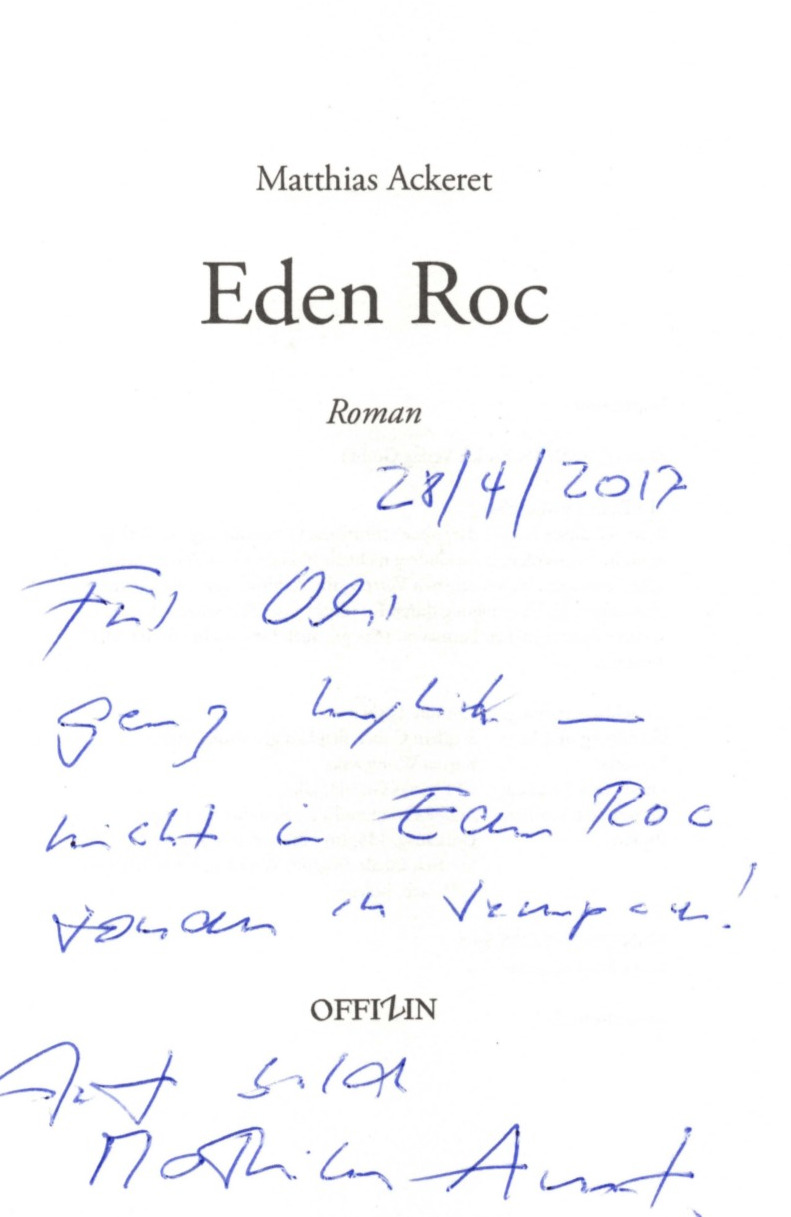 Matthias Ackeret
Eden Roc
Roman
28/4/2017
Für Oli
ganz herzlich —
nicht in Eden Roc
sondern in
OFFIZIN
Auf bald
Matthias Ackeret